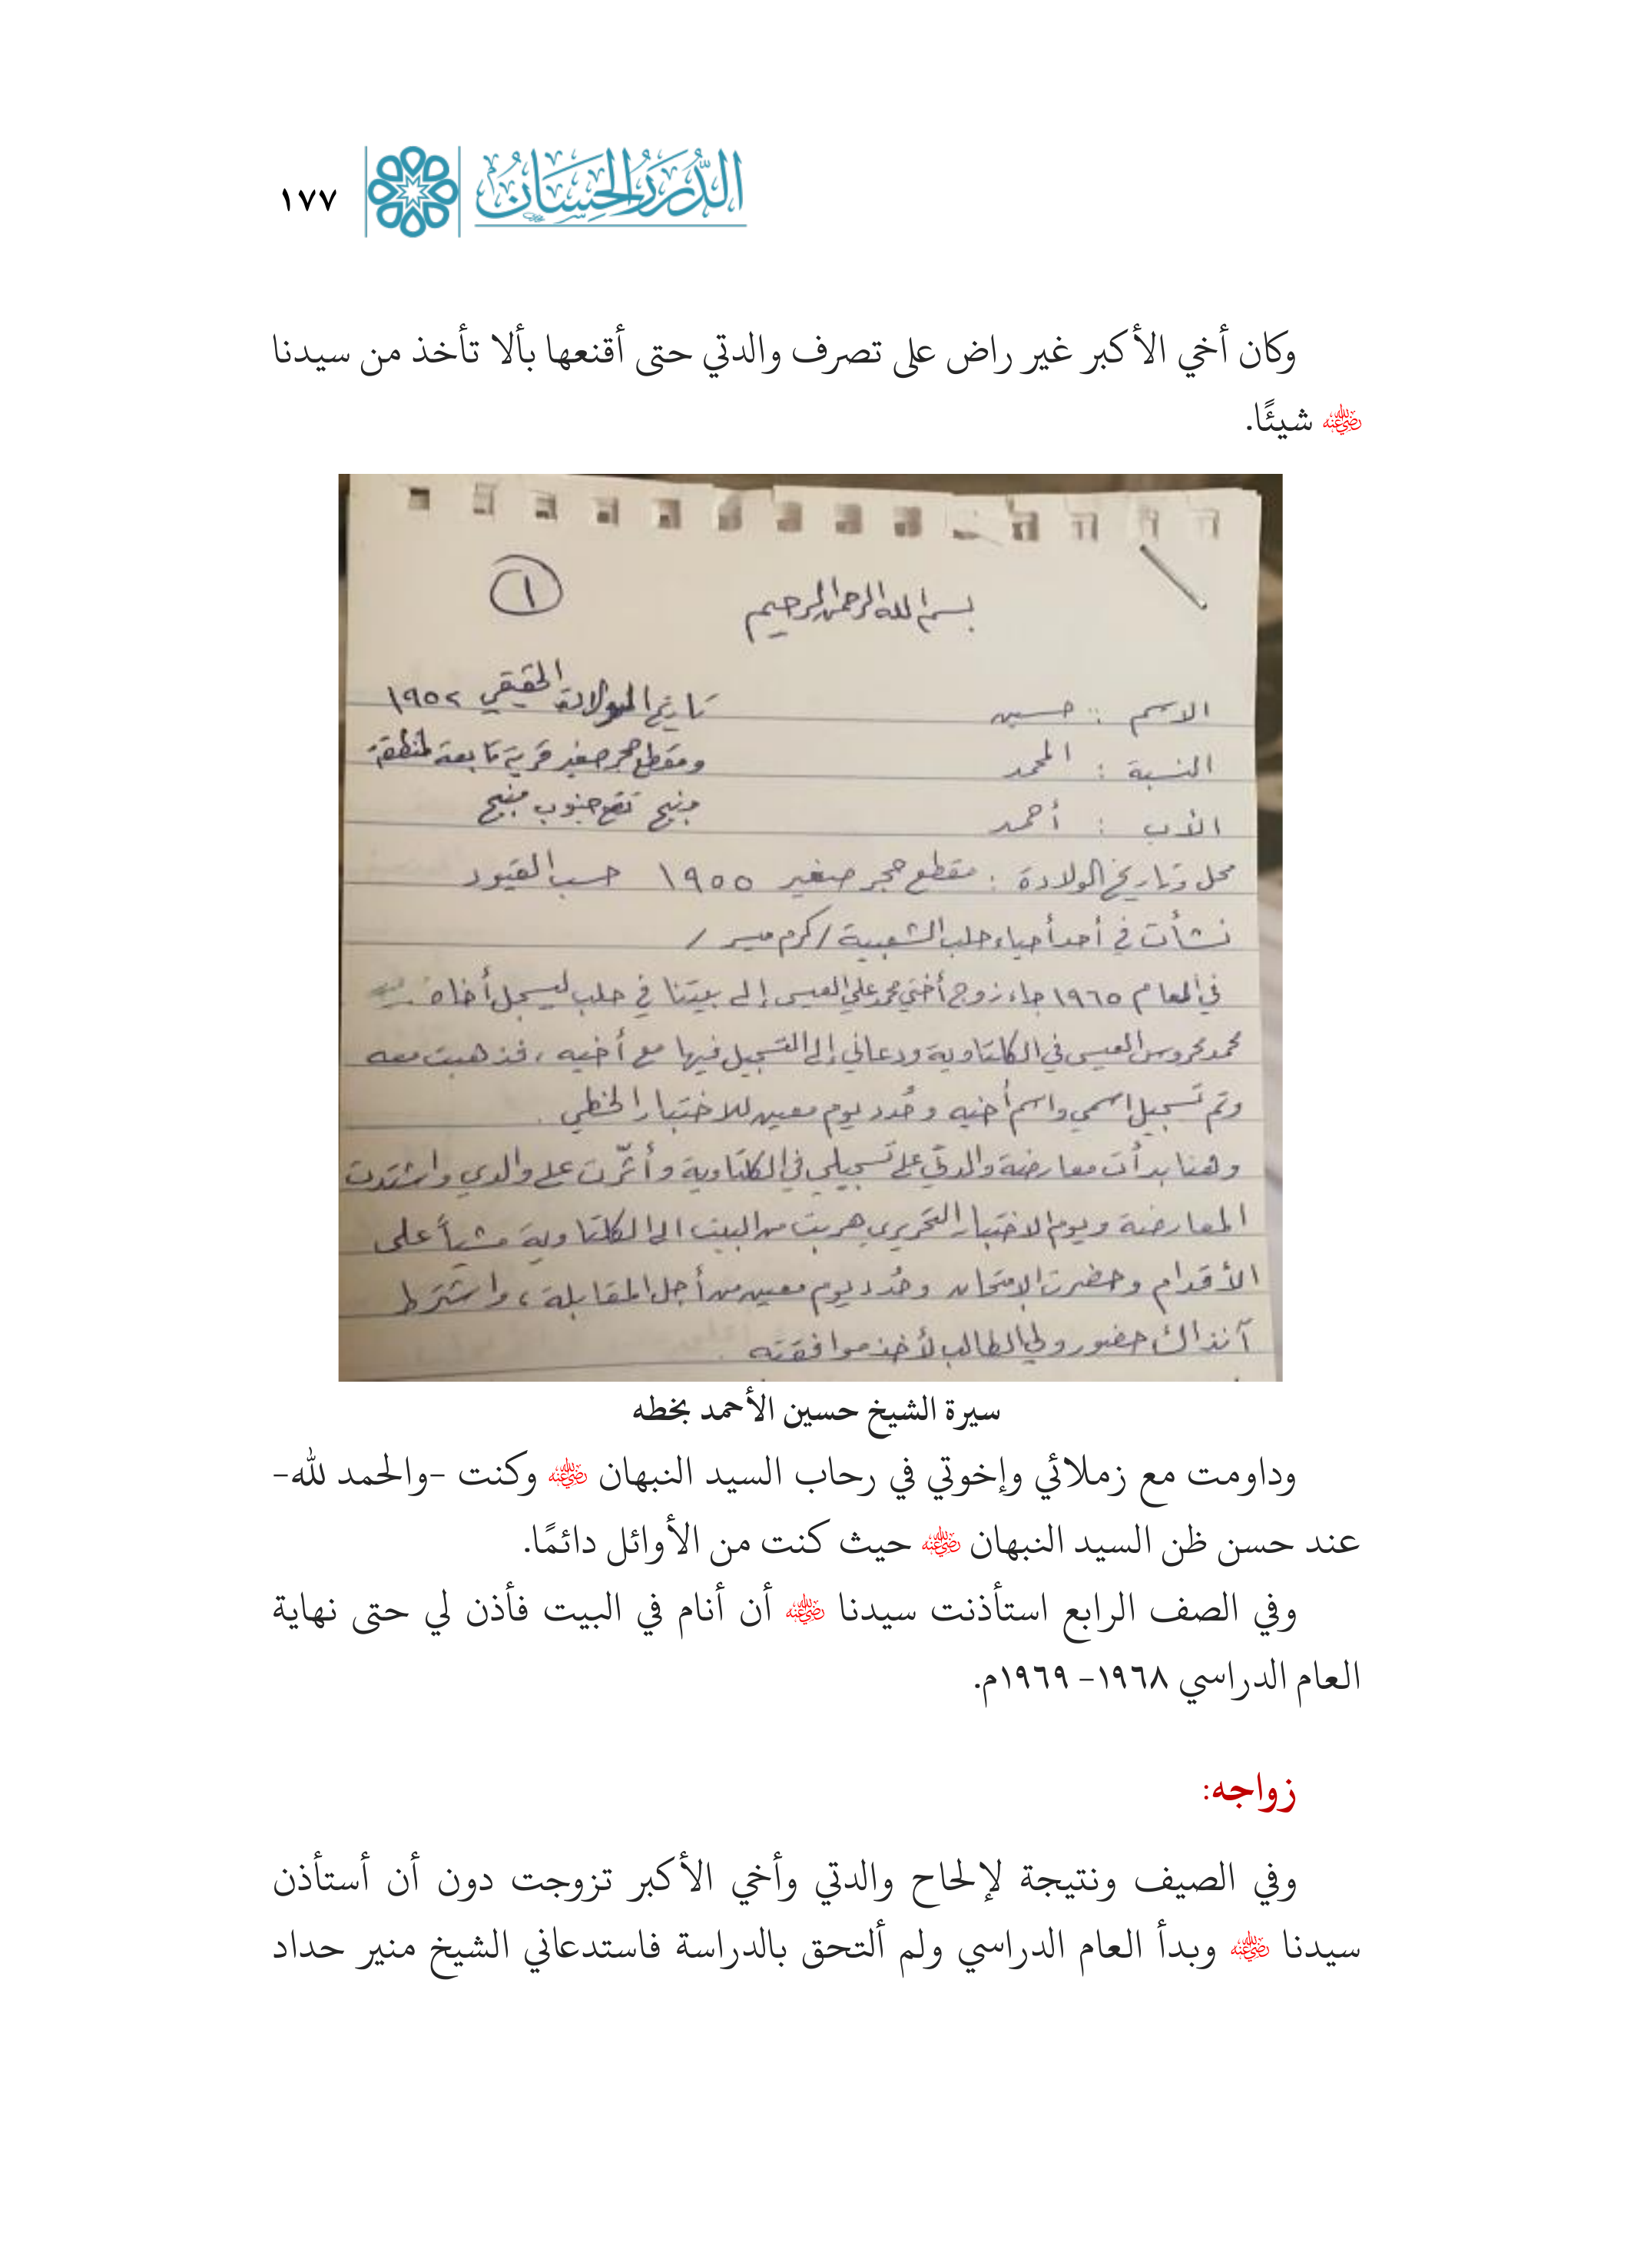 الدرر الحسان ١٧٧
وكان أخي الأكبر غير راض على تصرف والدتي حتى أقنعها بألا تأخذ من سيدنا
رضي الله عنه شيئًا.
١
بسم الله الرحمن الرحيم
الاسم : حسين
تاريخ الولادة الحقيقي ١٩٥٢
النسبة : المحمد
ومقطع حجر صغير قرية تابعة لمنطقة
الأب : أحمد
منبج تقع جنوب منبج
محل وتاريخ الولادة : مقطع حجر صغير ١٩٥٥ حسب القيود
نشأت في أحد أحياء حلب الشعبية / كرم ميسر /
في العام ١٩٦٥ جاء زوج أختي محمد علي العيسى إلى بيتنا في حلب ليسجل أخاه
محمد محروس العيسى في الكلتاوية ودعاني إلى التسجيل فيها مع أخيه ، فذهبت معه
وتم تسجيل اسمي واسم أخيه وحُدد يوم معين للاختبار الخطي .
وهنا بدأت معارضة والدتي على تسجيلي في الكلتاوية وأثّرت على والدي واشتدت
المعارضة ويوم الاختبار التحريري هربت من البيت الى الكلتاوية مشياً على
الأقدام وحضرت الامتحان وحُدد يوم معين من أجل المقابلة ، واشترط
آنذاك حضور ولي الطالب لأخذ موافقته
سيرة الشيخ حسين الأحمد بخطه
وداومت مع زملائي وإخوتي في رحاب السيد النبهان رضي الله عنه وكنت -والحمد لله-
عند حسن ظن السيد النبهان رضي الله عنه حيث كنت من الأوائل دائمًا.
وفي الصف الرابع استأذنت سيدنا رضي الله عنه أن أنام في البيت فأذن لي حتى نهاية
العام الدراسي ١٩٦٨- ١٩٦٩م.
زواجه:
وفي الصيف ونتيجة لإلحاح والدتي وأخي الأكبر تزوجت دون أن أستأذن
سيدنا رضي الله عنه وبدأ العام الدراسي ولم ألتحق بالدراسة فاستدعاني الشيخ منير حداد